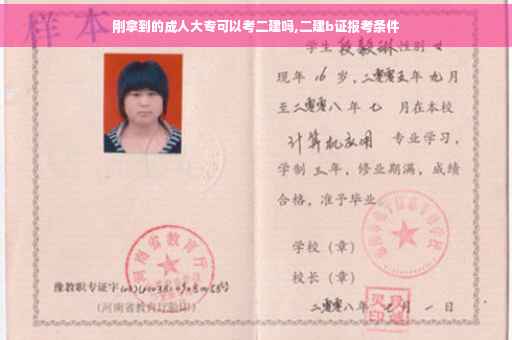 刚拿到的成人大专可以考二建吗,二建b证报考条件
样本
学生段毅琳性别女
现年16岁,二零零五年九月
至二零零八年七月在本校
计算机应用 专业学习,
学制三年,修业期满,成绩
合格,准予毕业
学校(章)
校长(章)
二零零八年 月一日
河南省教育厅
豫教职专证字
(河南省教育厅验印)